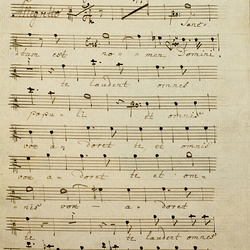 Allegretto
Sanc-
tum est no - men Domini
te laudent omnes
popu - li et omnis
vox adoret te et omnis
vox a - doret te et om-
nis vox a - doret
te te laudent omnes